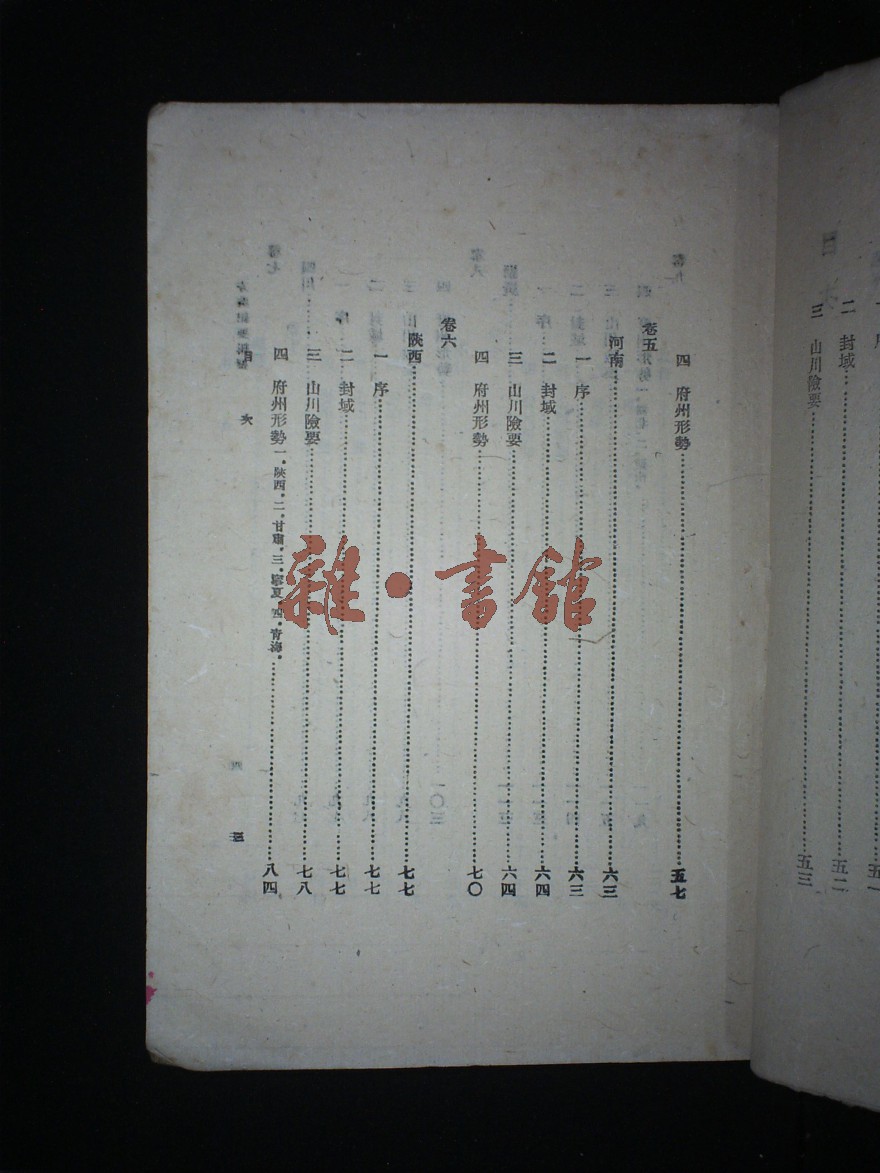 序……五一
二 封域……五二
三 山川險要……五三
四 府州形勢……五七
卷五
河南……六三
一 序……六三
二 封域……六四
三 山川險要……六四
四 府州形勢……七〇
卷六
陝西……七七
一 序……七七
二 封域……七七
三 山川險要……七八
四 府州形勢 一．陝西．二．甘肅．三．寧夏．四．青海．……八四
目 次
三
雜·書館